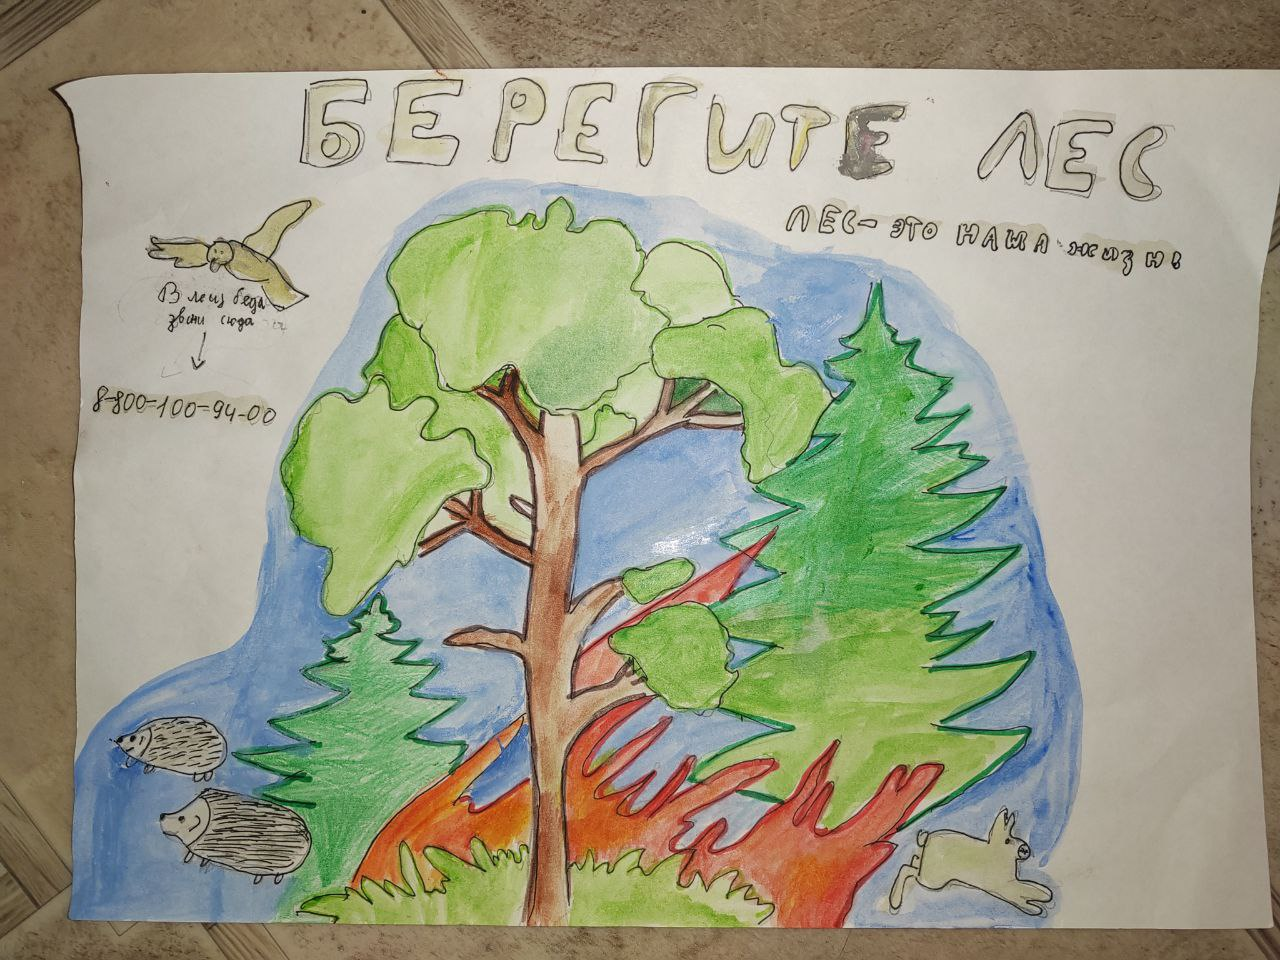 БЕРЕГИТЕ ЛЕС
ЛЕС- ЭТО НАША ЖИЗНЬ
В лесу беда
звони сюда
8-800-100-94-00